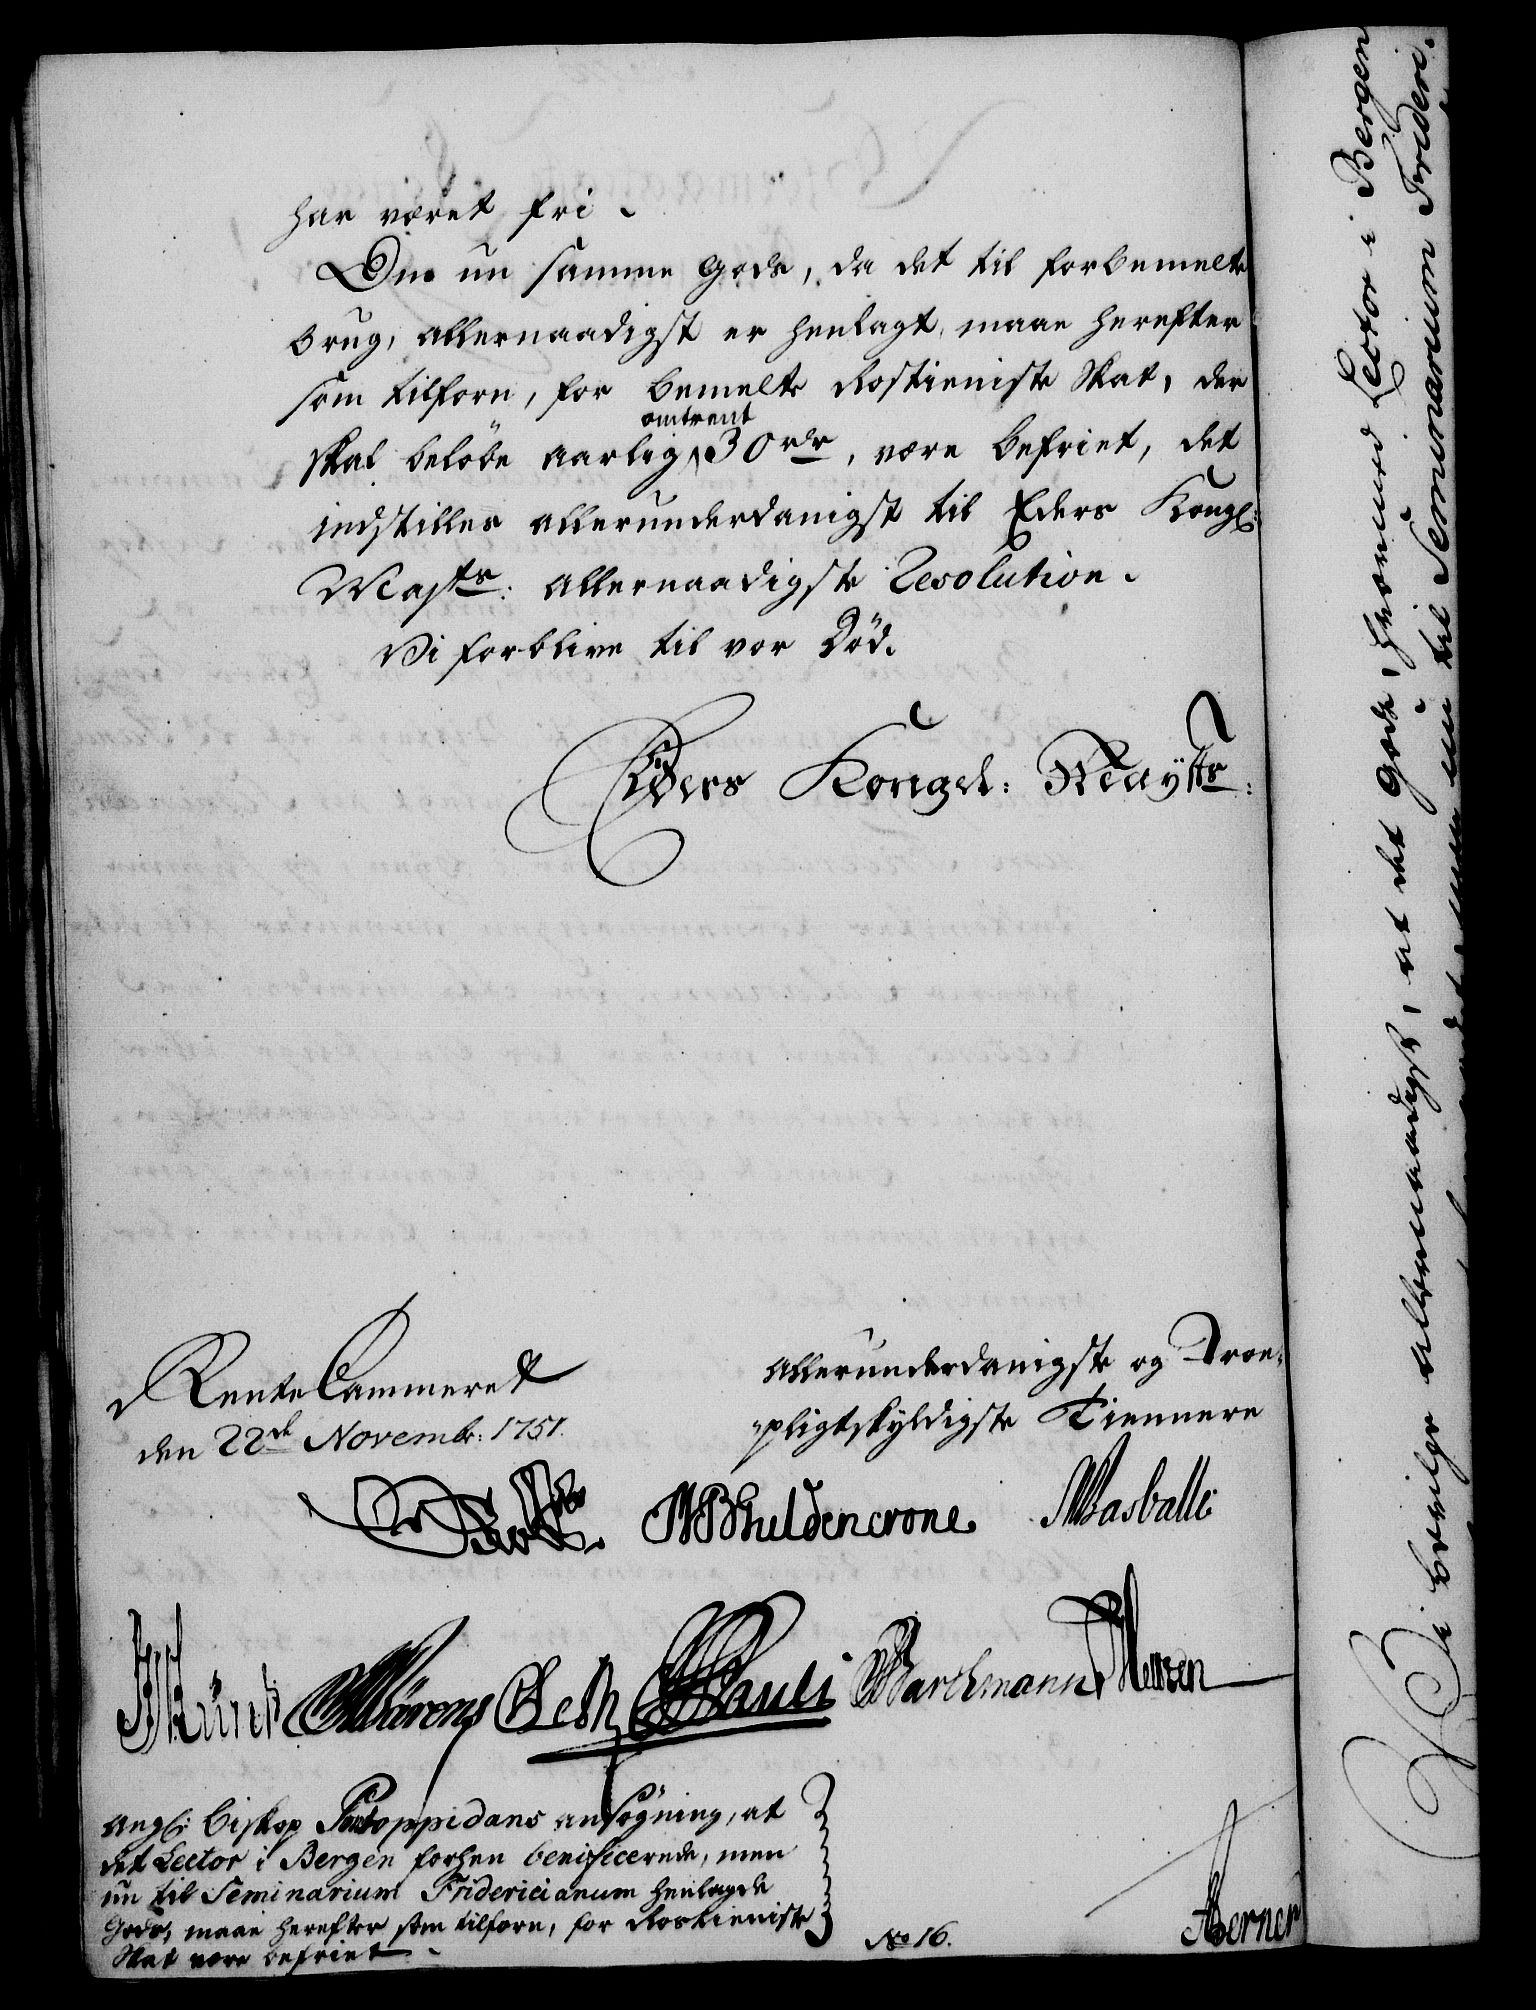 har været fri.
Om nu samme Gods, da det til forbemelte
brug, allernaadigst er henlagt, maae herefter
som tilforn, for bemelte Rostieniste Skat, der
skal beløbe aarlig omtrent 30 rdr, være befriet, det
indstilles allerunderdanigst til Eders Kongl:
Majts: allernaadigste Resolution.
Vi forblive til vor Død.
Eders Kongel: Mayts:
RenteCammeret
den 22de Novembr: 1751.
Allerunderdanigste og Troe-
pligtskyldigste Tiennere
Huldencrone
Masballe
Pauli Barchmann
Angl: Biskop Pontoppidans ansøgning, at
det Lector i Bergen forhen beneficerede, men
nu til Seminarium Fridericianum henlagde
Gods, maae herefter som tilforn, for Rostieniste
Skat være befriet.
No 16.
Berner
Vi bevilge allernaadigst, at det Gods, hvormed Lector i Bergen
nu til Seminarium Frideri-